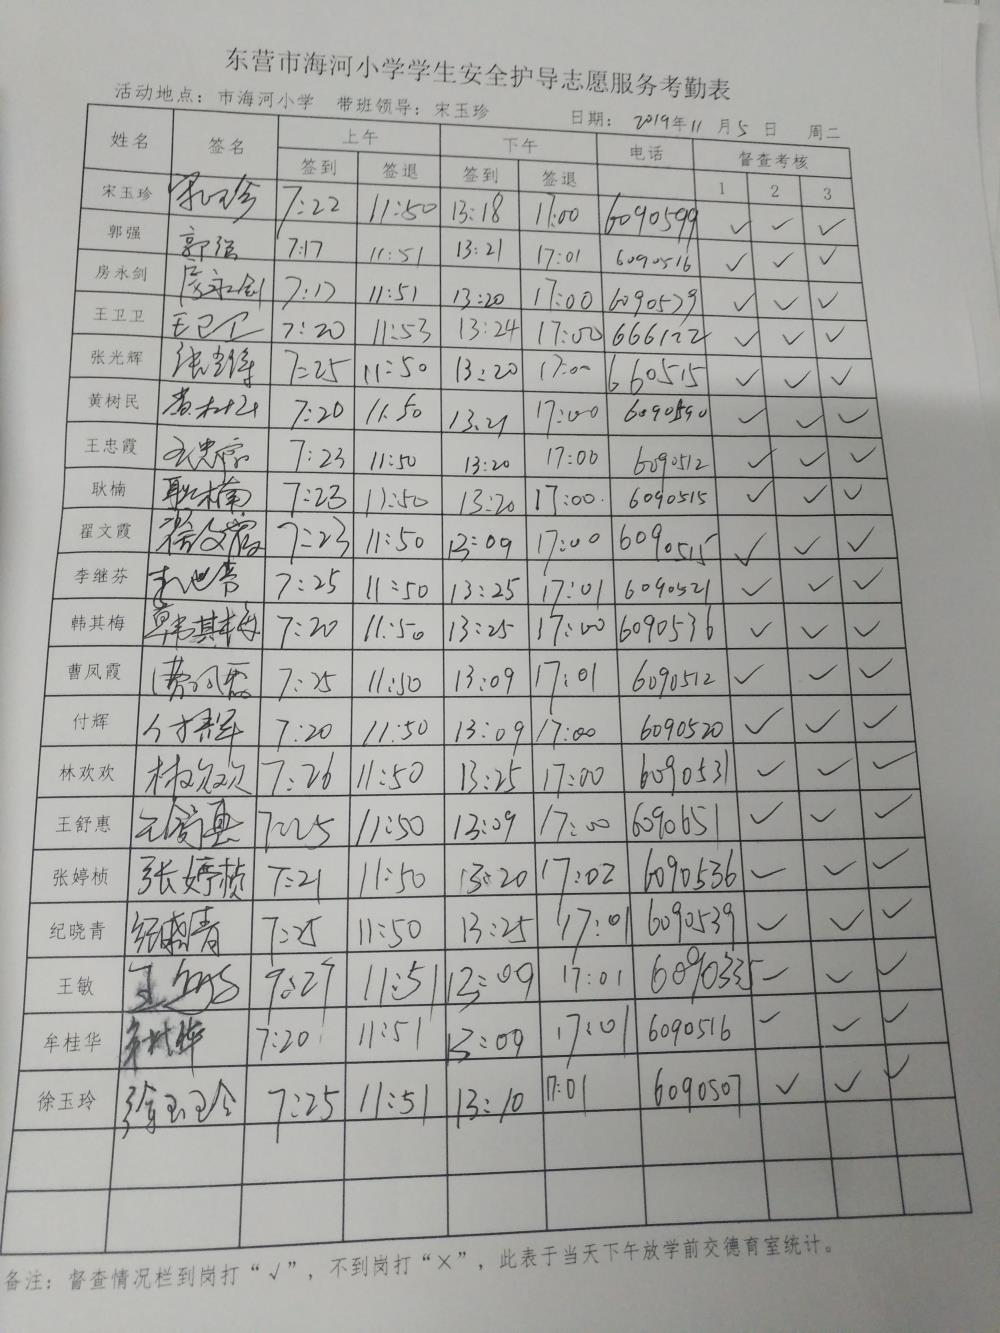 东营市海河小学学生安全护导志愿服务考勤表
活动地点：市海河小学 带班领导：宋玉珍 日期：2019年11月5日 周二
姓名 签名 上午 下午 电话 督查考核
签到 签退 签到 签退 1 2 3
宋玉珍 宋玉珍 7:22 11:50 13:18 17:00 6090599 ✓ ✓ ✓
郭强 郭强 7:17 11:51 13:21 17:01 6090516 ✓ ✓ ✓
房永剑 房永剑 7:17 11:51 13:20 17:00 6090539 ✓ ✓ ✓
王卫卫 王卫卫 7:20 11:53 13:24 17:00 666122 ✓ ✓ ✓
张光辉 张光辉 7:25 11:50 13:20 17:00 660515 ✓ ✓ ✓
黄树民 黄树民 7:20 11:50 13:21 17:00 6090590 ✓ ✓ ✓
王忠霞 王忠霞 7:23 11:50 13:20 17:00 6090512 ✓ ✓ ✓
耿楠 耿楠 7:23 11:50 13:20 17:00 6090515 ✓ ✓ ✓
翟文霞 翟文霞 7:23 11:50 13:09 17:00 6090515 ✓ ✓ ✓
李继芬 李继芬 7:25 11:50 13:25 17:01 6090521 ✓ ✓ ✓
韩其梅 韩其梅 7:20 11:50 13:25 17:00 6090536 ✓ ✓ ✓
曹凤霞 曹凤霞 7:25 11:50 13:09 17:01 6090512 ✓ ✓ ✓
付辉 付辉 7:20 11:50 13:09 17:00 6090520 ✓ ✓ ✓
林欢欢 林欢欢 7:26 11:50 13:25 17:00 6090531 ✓ ✓ ✓
王舒惠 王舒惠 7:25 11:50 13:09 17:00 6090651 ✓ ✓ ✓
张婷桢 张婷桢 7:21 11:50 13:20 17:02 6090536 ✓ ✓ ✓
纪晓青 纪晓青 7:25 11:50 13:25 17:01 6090539 ✓ ✓ ✓
王敏 王敏 7:27 11:51 13:09 17:01 6090335 ✓ ✓ ✓
牟桂华 牟桂华 7:20 11:51 13:09 17:01 6090516 ✓ ✓ ✓
徐玉玲 徐玉玲 7:25 11:51 13:10 17:01 6090507 ✓ ✓ ✓
备注：督查情况栏到岗打“√”，不到岗打“×”，此表于当天下午放学前交德育室统计。